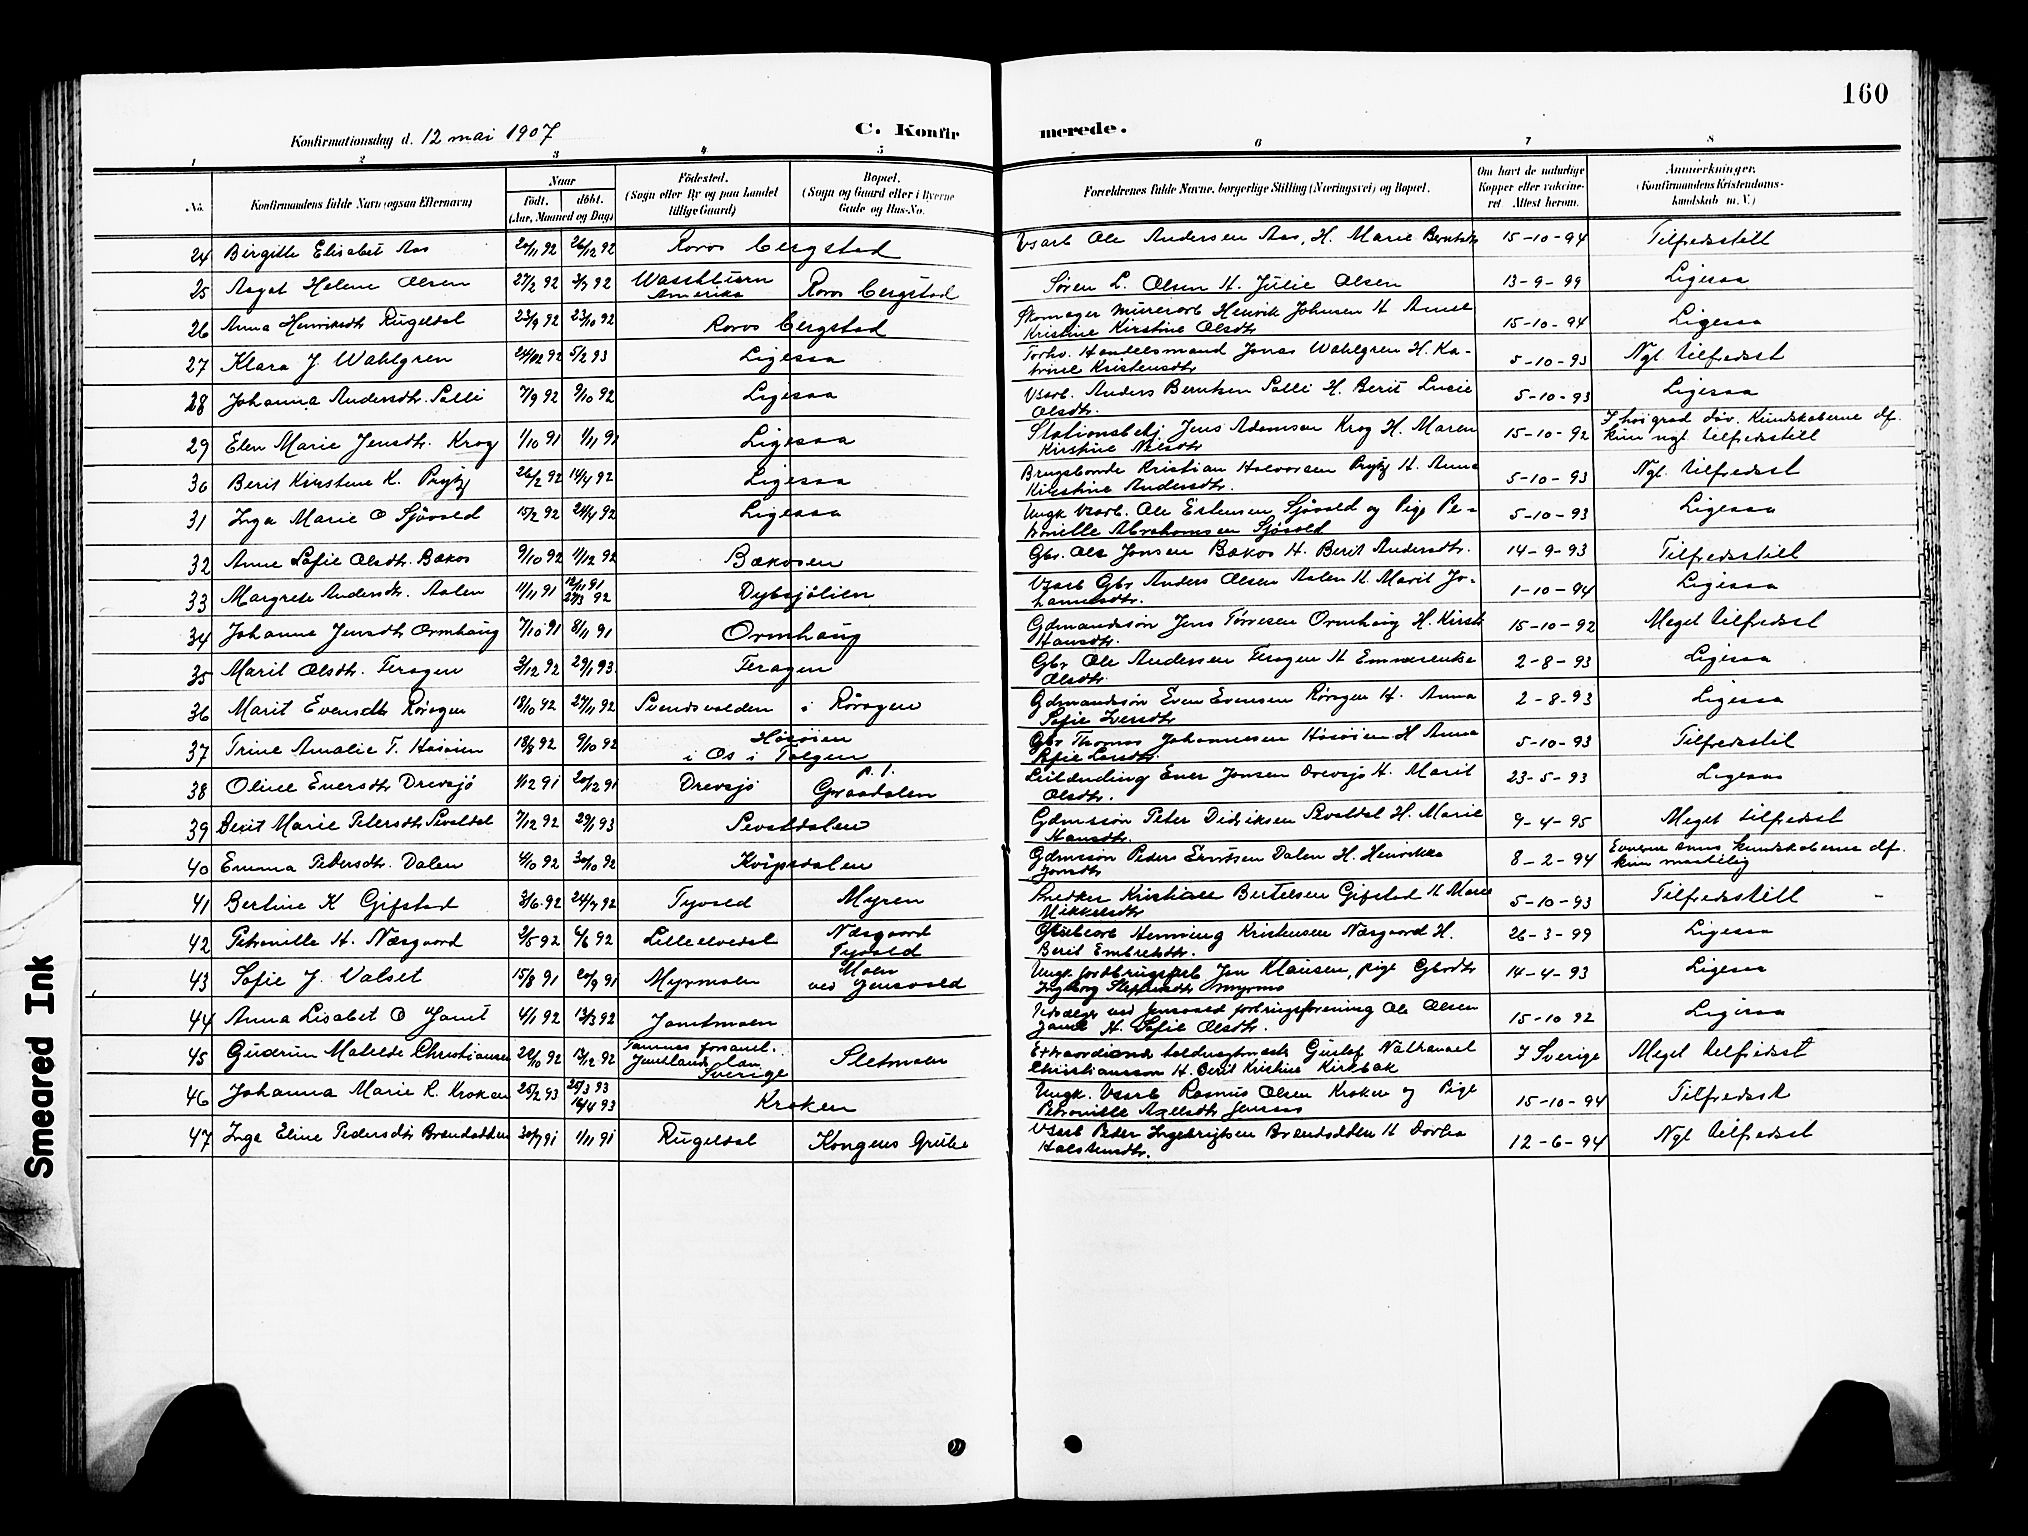 160
Konfirmationsdag d. 12 mai 1907
C. Konfirmerede.
1 2 3 4 5 6 7 8
No.
Konfirmandens fulde Navn (ogsaa Efternavn)
Naar
født. døbt.
(Aar, Maaned og Dag)
Fødested.
(Sogn eller By og paa Landet
tillige Gaard)
Bopæl.
(Sogn og Gaard eller i Byerne
Gade og Hus-No.
Forældrenes fulde Navne, borgerlige Stilling (Næringsvei) og Bopæl.
Om havt de naturlige
Kopper eller vakcine-
ret Attest herom.
Anmærkninger.
(Konfirmandens Kristendoms-
kundskab m. V.)
24 Birgitte Elisabet Aas 20/11 92 26/12 92 Roros bergstad Vsarb Ole Andersen Aas, H. Marie Berntsdtr 15-10-94 Tilfredsstill
25 Aagot Helene Olsen 27/2 92 3/7 92 Amerika Roros bergstad Søren L. Olsen H. Julie Olsen 13-9-99 Ligesaa
26 Anna Henriksdtr Rugeldal 23/9 92 23/10 92 Roros bergstad Skomager murerarb Henrik Johnsen H Anne
Kristine Kirstine Olsdtr 15-10-94 Ligesaa
27 Klara J. Wahlgren 5/2 93 Ligesaa Forhv. Handelsmand Jonas Wahlgren H. Ka-
trine Kristensdtr 5-10-93 Ngl tilfredsst
28 Johanna Andersdtr. Salli 7/9 92 9/10 92 Ligesaa Vsarb. Anders Berntsen Salli H. Berit Lucie
Olsdtr. 5-10-93 Ligesaa
29 Elen Marie Jensdtr. Krog 1/10 91 1/11 91 Ligesaa Stationsbetj. Jens Adamsen Krog H. Maren
Kirstine Nilsdtr 15-10-92 I høi grad døv. Kundskaberne df.
kun ngl. tilfredsstill
30 Berit Kirstine K. Prytz 26/2 92 14/4 92 Ligesaa Brugsbonde Kristian Halvorsen Prytz H. Anna
Kirstine Andersdtr. 5-10-93 Ngl. tilfredsst
31 Inga Marie O Sjövold 15/2 92 24/4 92 Ligesaa Ungk Vsarb. Ole Estensen Sjövold og Pige Pe-
tronille Abrahamsen Sjövold 5-10-93 Ligesaa
32 Anne Sofie Olsdtr. Bækos 9/10 92 1/12 92 Bækosen Gbr. Ole Jonsen Bækos H. Berit Andersdtr. 14-9-93 Tilfredsstill
33 Margrete Andersdtr. Aalen 11/11 91 12/11 91
27/3 92 Dybsjölien Vsarb Gbr Anders Olsen Aalen H. Marit Jo-
hannesdtr. 1-10-94 Ligesaa
34 Johanna Jensdtr Ormhaug 7/10 91 8/11 91 Ormhaug Gdmandssøn Jens Torresen Ormhaug H. Kirst
Hansdtr. 15-10-92 Meget tilfredsst
35 Marit Olsdtr. Feragen 3/12 92 29/1 93 Feragen Gbr Ole Andersen Feragen H Emmerentse
Olsdtr. 2-8-93 Ligesaa
36 Marit Evensdtr Rörogen 18/10 92 27/11 92 Svendsvolden i Rörogen Gdmandssøn Even Evensen Rörogen H. Anna
Sofie Iversdtr 2-8-93 Ligesaa
37 Trine Amalie T. Hosöien 18/8 92 9/10 92 Hosöien
i Os i Tolgen Gbr Thomas Johannesen Hosöien H Anna
Sofie Larsdtr. 5-10-93 Tilfredsstil
38 Oline Enersdtr Drevsjö 1/12 91 20/12 91 Drevsjö p. t.
Graadalen Leilænding Ener Jonsen Drevsjö H. Marit
Olsdtr. 23-5-93 Ligesaa
39 Berit Marie Petersdtr Sevaldal 7/12 92 29/1 93 Sevatdalen Gdmssön Peter Didriksen Sevatdal H. Marie
Hansdtr. 9-4-95 Meget tilfredsst
40 Emma Pedersdtr. Dalen 4/10 92 30/10 92 Kvipsdalen Gdmssøn Peder Erntsen Dalen H. Henrikka
Jonsdtr 8-2-94 Evnerne smaa kundskaberne df.
kun maatelig
41 Bertine K Gifstad 3/6 92 24/7 92 Tyvold Myren Snedker Kristian Bertelsen Gifstad H Marie
Mikkelsdtr 5-10-93 Tilfredsstill
42 Petronille H. Næsgaard 2/5 92 6/6 92 Lilleelvedal Næsgaard
Tyvold Grubearb Henning Kristensen Næsgaard H.
Berit Embretsdtr. 26-3-99 Ligesaa
43 Sofie J. Valset 15/8 91 20/9 91 Myrmoen Moen
ved Jensvold Ungk jordbrugsarb Jon Klausen, pige Gbrdtr
Ingeborg Steffensdtr Myrmo 14-4-93 Ligesaa
44 Anna Lisabet O Jamt 4/1 92 13/3 92 Jamtmoen ved Jensvold forbrugsforening Ole Olsen
Jamt H. Sofie Olsdtr. 15-10 92 Ligesaa
45 Gudrun Matilde Christiansen 22/10 92 13/12 92 Tännäs forsaml.
Jemtlands Län
Sverige Sletmoen Extraordinær Gustaf Nathanael
Christiansson H. Berit Kristine Kirkbak I Sverige Meget tilfredsst
46 Johanna Marie R. Kroken 25/2 93 25/3 93
16/4 93 Kroken Ungk. Vsarb Rasmus Olsen Kroken og Pige
Petronille Axelsdtr Jensaas 15-10-94 Tilfredsst
47 Inga Eline Pedersdtr Brendodden 30/7 91 1/11 91 Rugeldal Kongens Grube Vsarb Peder Ingebrigtsen Brendodden H Dorthea
Halstensdtr. 12-6-94 Ngl tilfredsst
Smeared Ink